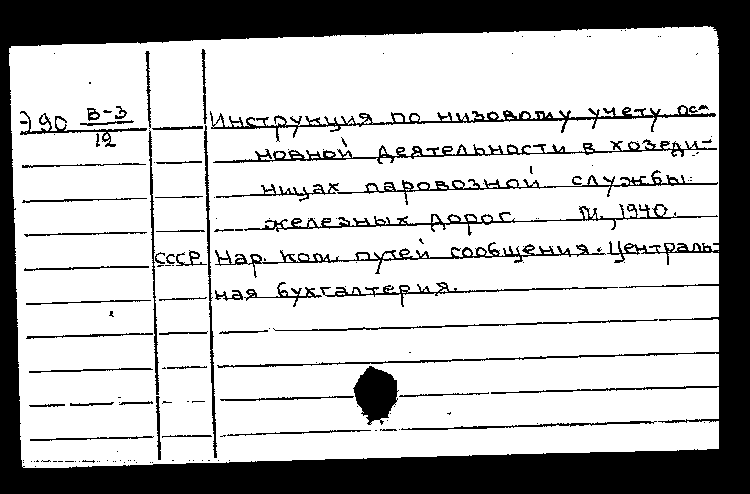 Э90 В-3/12 Инструкция по низовому учету ос-
новной деятельности в хозеди-
ницах паровозной службы
железных дорог М., 1940.
СССР. Нар. ком. путей сообщения. Централь-
ная бухгалтерия.